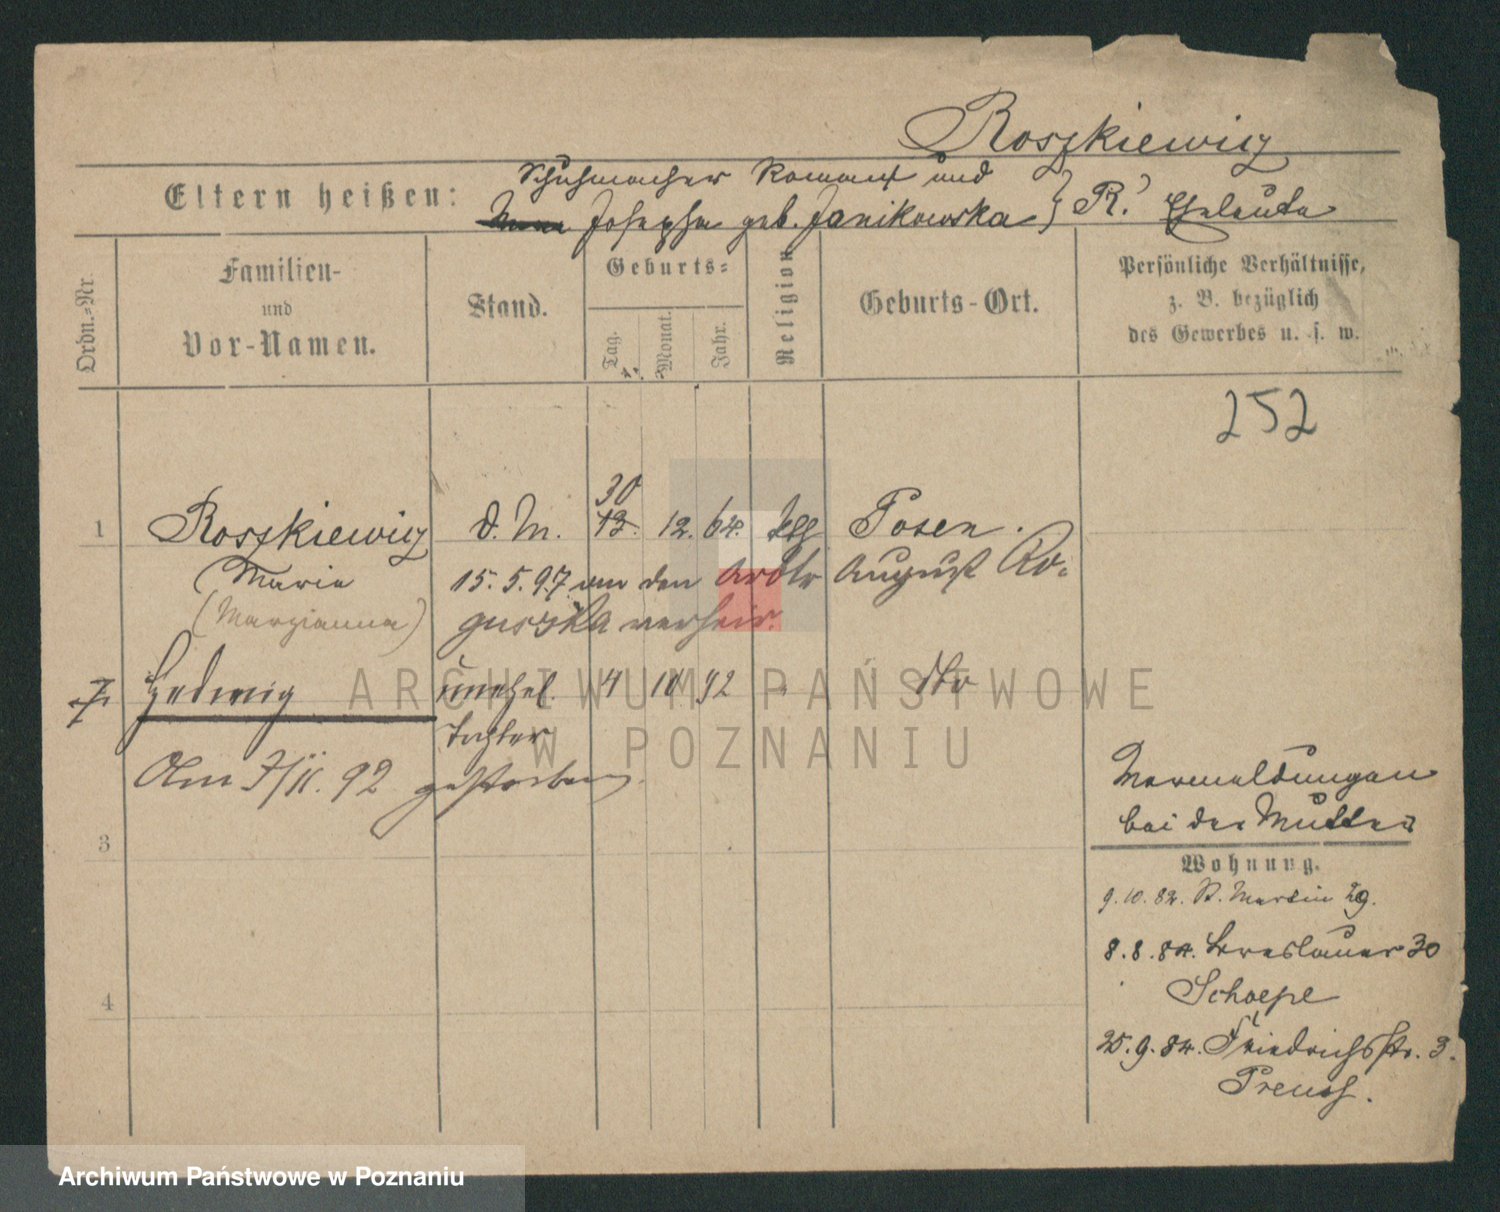 Roszkiewicz
Eltern heißen:
Schuhmacher Roman und
Josepha geb. Janikowska } R. Eheleute
Ordn.-Nr.
Familien-
und
Vor-Namen.
Stand.
Geburts-
Tag.
Monat.
Jahr.
Religion
Geburts-Ort.
Persönliche Verhältnisse,
z. B. bezüglich
des Gewerbes u. s. w.
252
30
1 Roszkiewicz d. M. 12. 12. 64. kth Posen.
Marie 15. 5. 97. an den Arbtr August Ro-
(Maryianna) guszka verheir.
Hedwig unehel. 4 10 92 " dto
Tochter
Am 7/11. 92 gestorben.
3
4
Vermeldungen
bei der Mutter
Wohnung.
9.10.82. St. Martin 29.
8.8.84. Breslauer 30
Schoepe
25.9.84. Friedrichsstr. 3.
Preuss.
ARCHIWUM PAŃSTWOWE
W POZNANIU
Archiwum Państwowe w Poznaniu